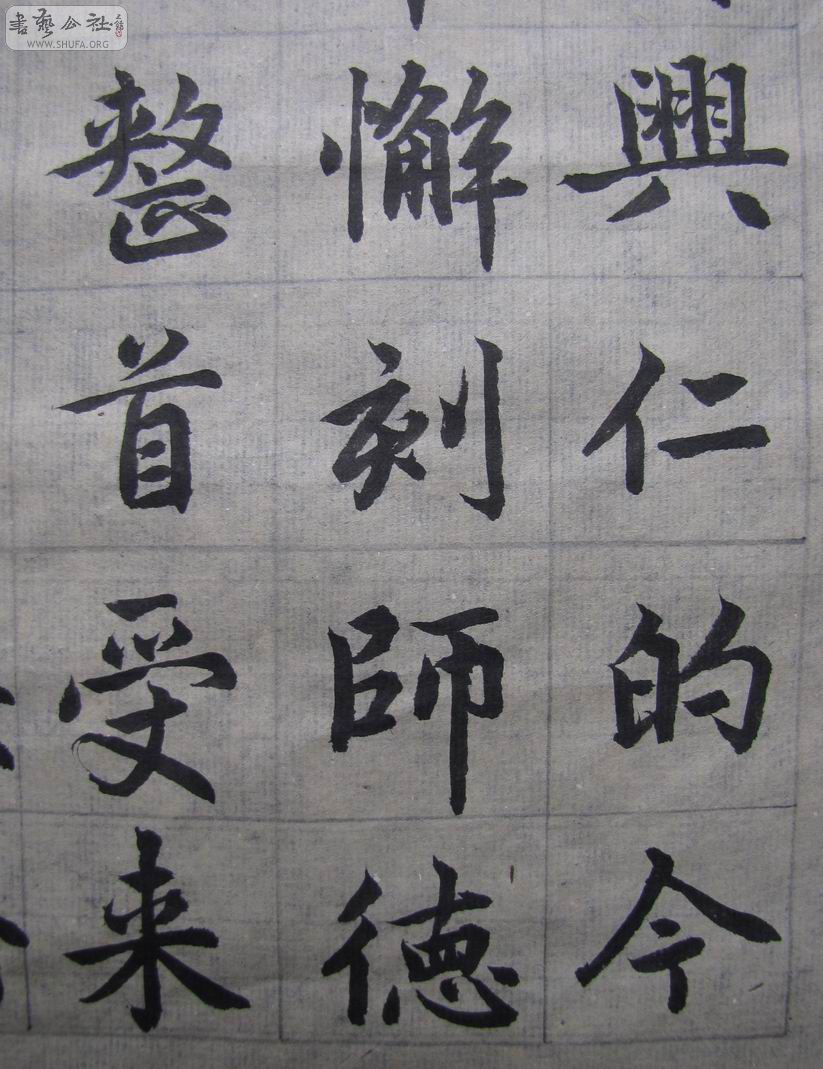 興仁的今
懈刻師德
整首受来
書藝公社
WWW.SHUFA.ORG